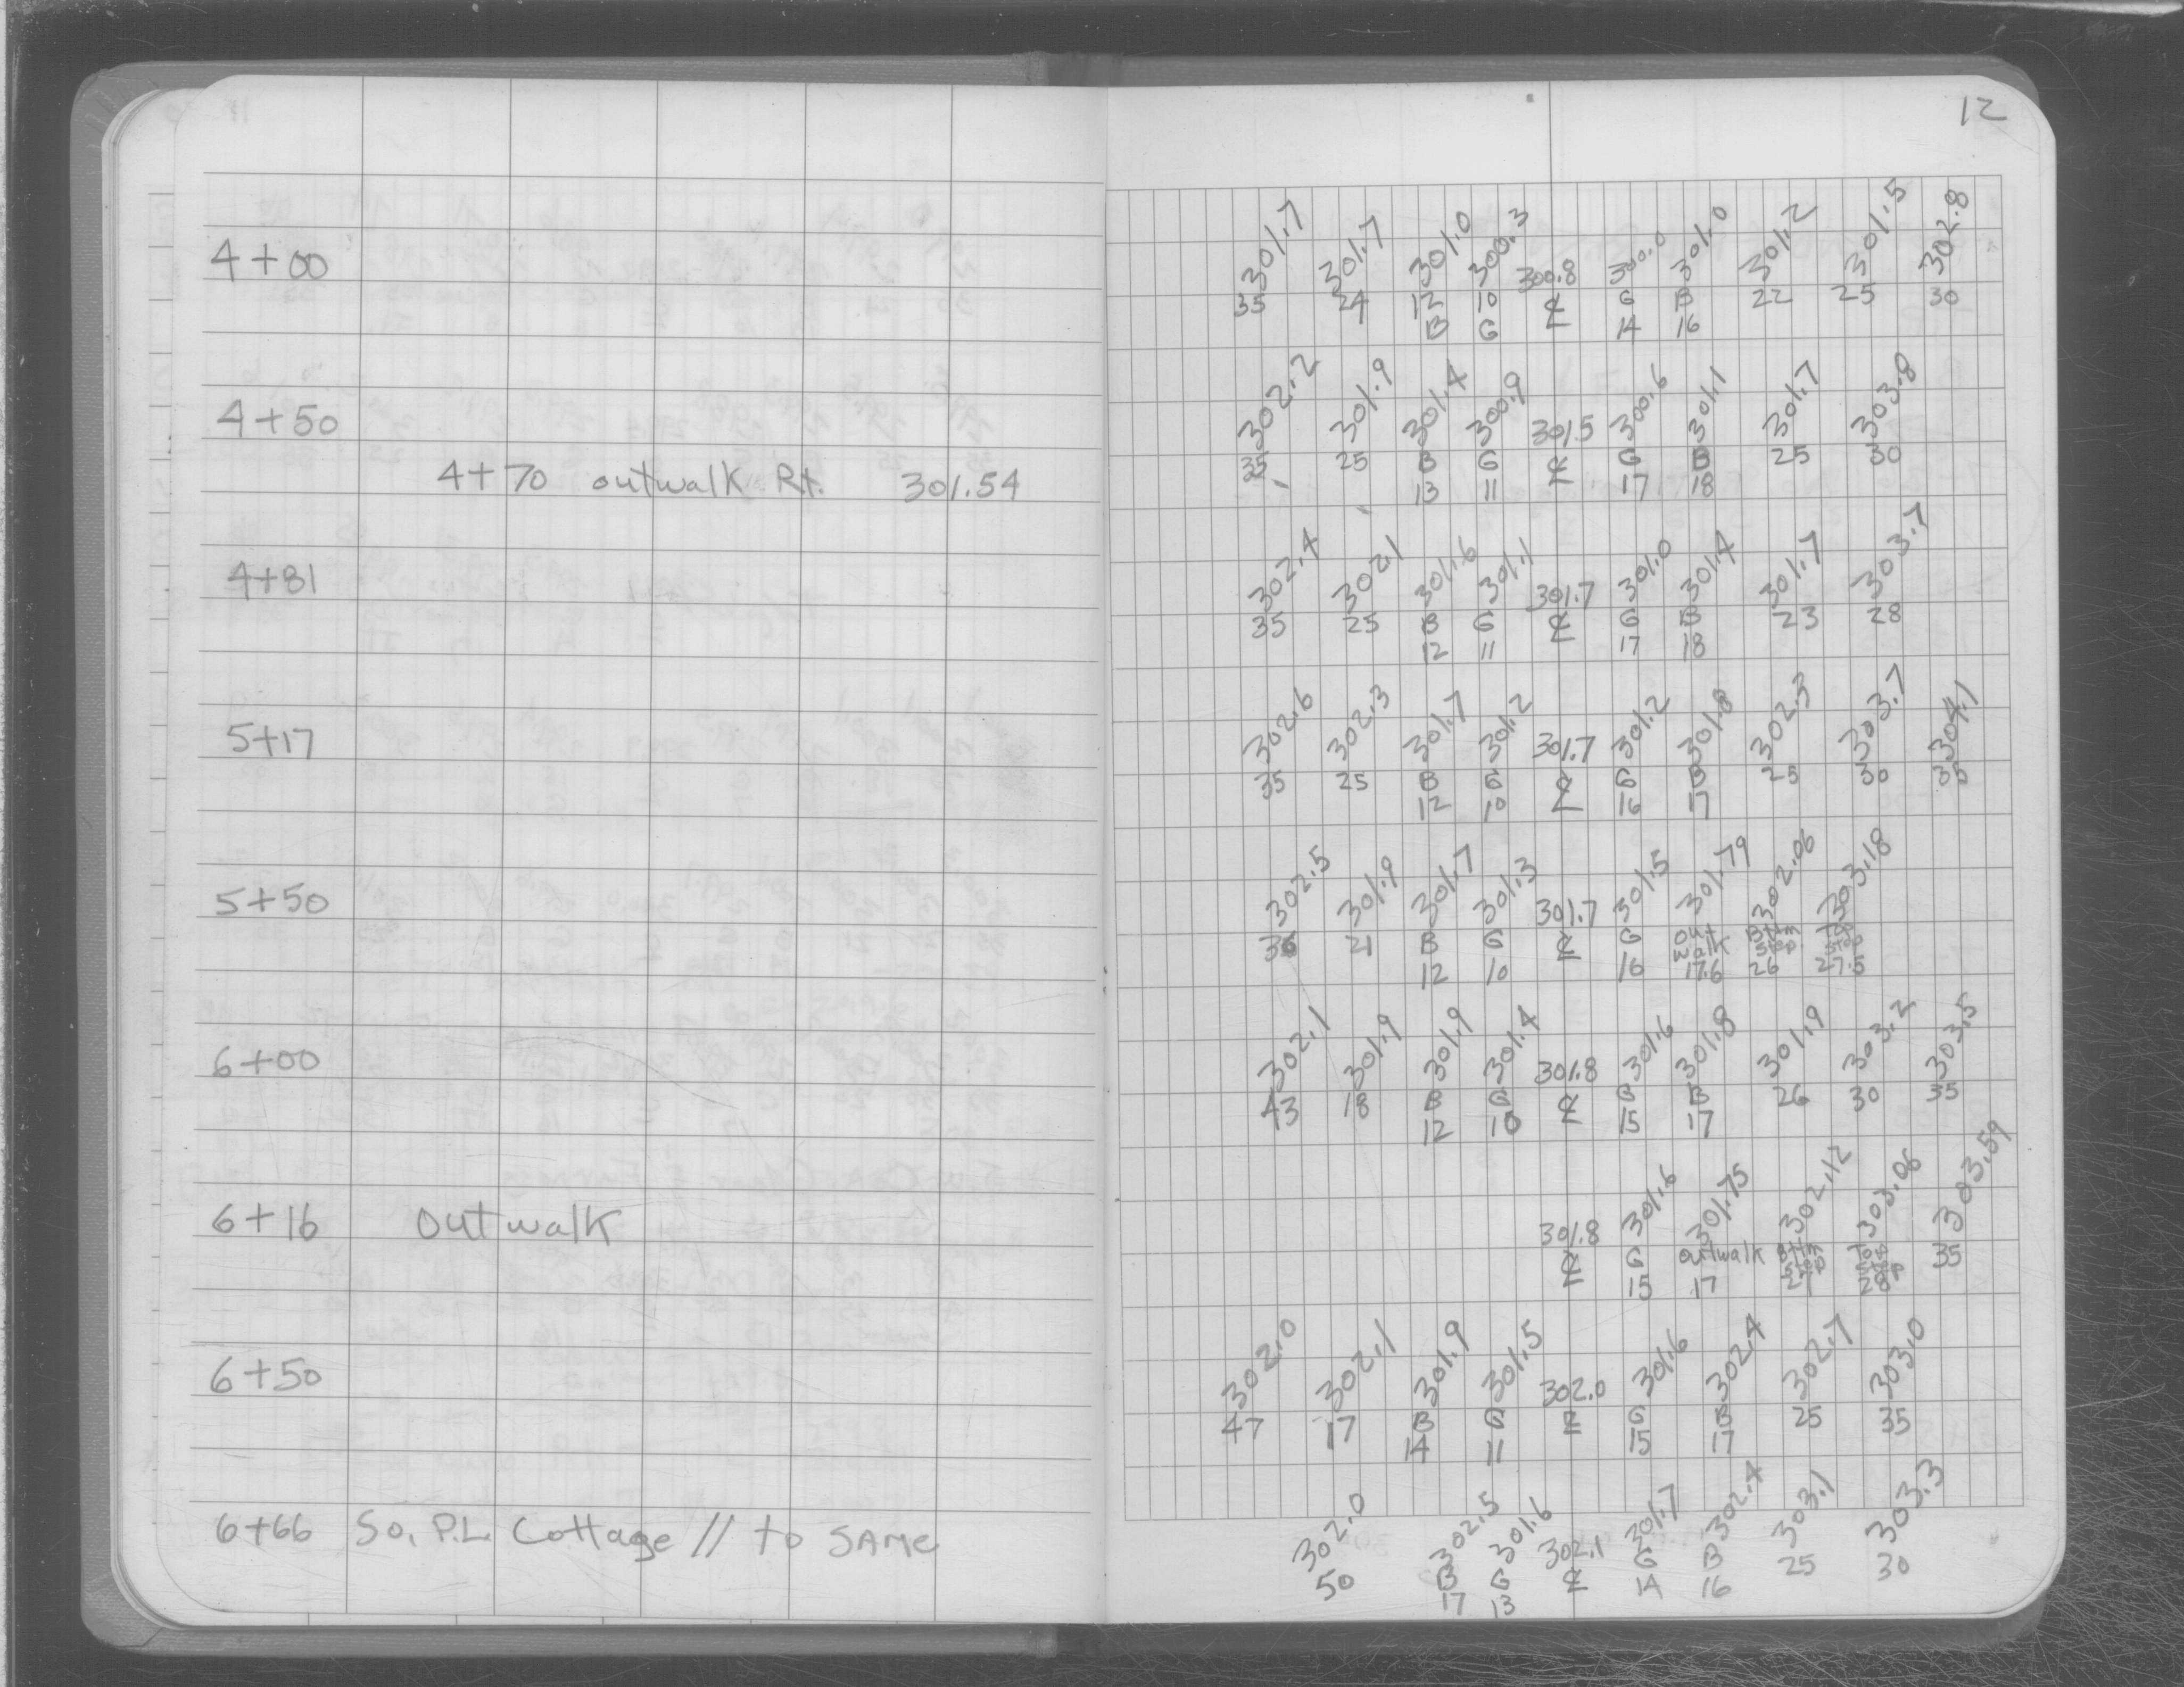 12
4+00 301.7 301.7 301.0 300.3 300.8 300.0 301.0 301.2 301.5 302.8
35 24 12 10 ℄ G B 22 25 30
B G 14 16
4+50 302.2 301.9 301.4 300.9 301.5 300.6 301.1 301.7 303.8
35 25 B G ℄ G B 25 30
4+70 outwalk Rt. 301.54
13 11 17 18
4+81 302.4 302.1 301.6 301.1 301.7 301.0 301.4 301.7 303.7
35 25 B G ℄ G B 23 28
12 11 17 18
5+17 302.6 302.3 301.7 301.2 301.7 301.2 301.8 302.3 303.7 304.1
35 25 B G ℄ G B 25 30 35
12 10 16 17
5+50 302.5 301.9 301.7 301.3 301.7 301.5 301.79 302.06 303.18
36 21 B G ℄ G out Bttm Top
walk step step
12 10 16 17.6 26 27.5
6+00 302.1 301.9 301.9 301.4 301.8 301.6 301.8 301.9 303.2 303.5
43 18 B G ℄ G B 26 30 35
12 10 15 17
6+16 outwalk 301.8 301.6 301.75 302.12 303.06 303.59
℄ G outwalk Bttm Top 35
step step
15 17 27 28
6+50 302.0 302.1 301.9 301.5 302.0 301.6 302.4 302.7 303.0
47 17 B G ℄ G B 25 35
14 11 15 17
6+66 So. P.L. Cottage // to SAME 302.0 302.5 301.6 302.1 301.7 302.4 303.1 303.3
50 B G ℄ G B 25 30
17 13 14 16